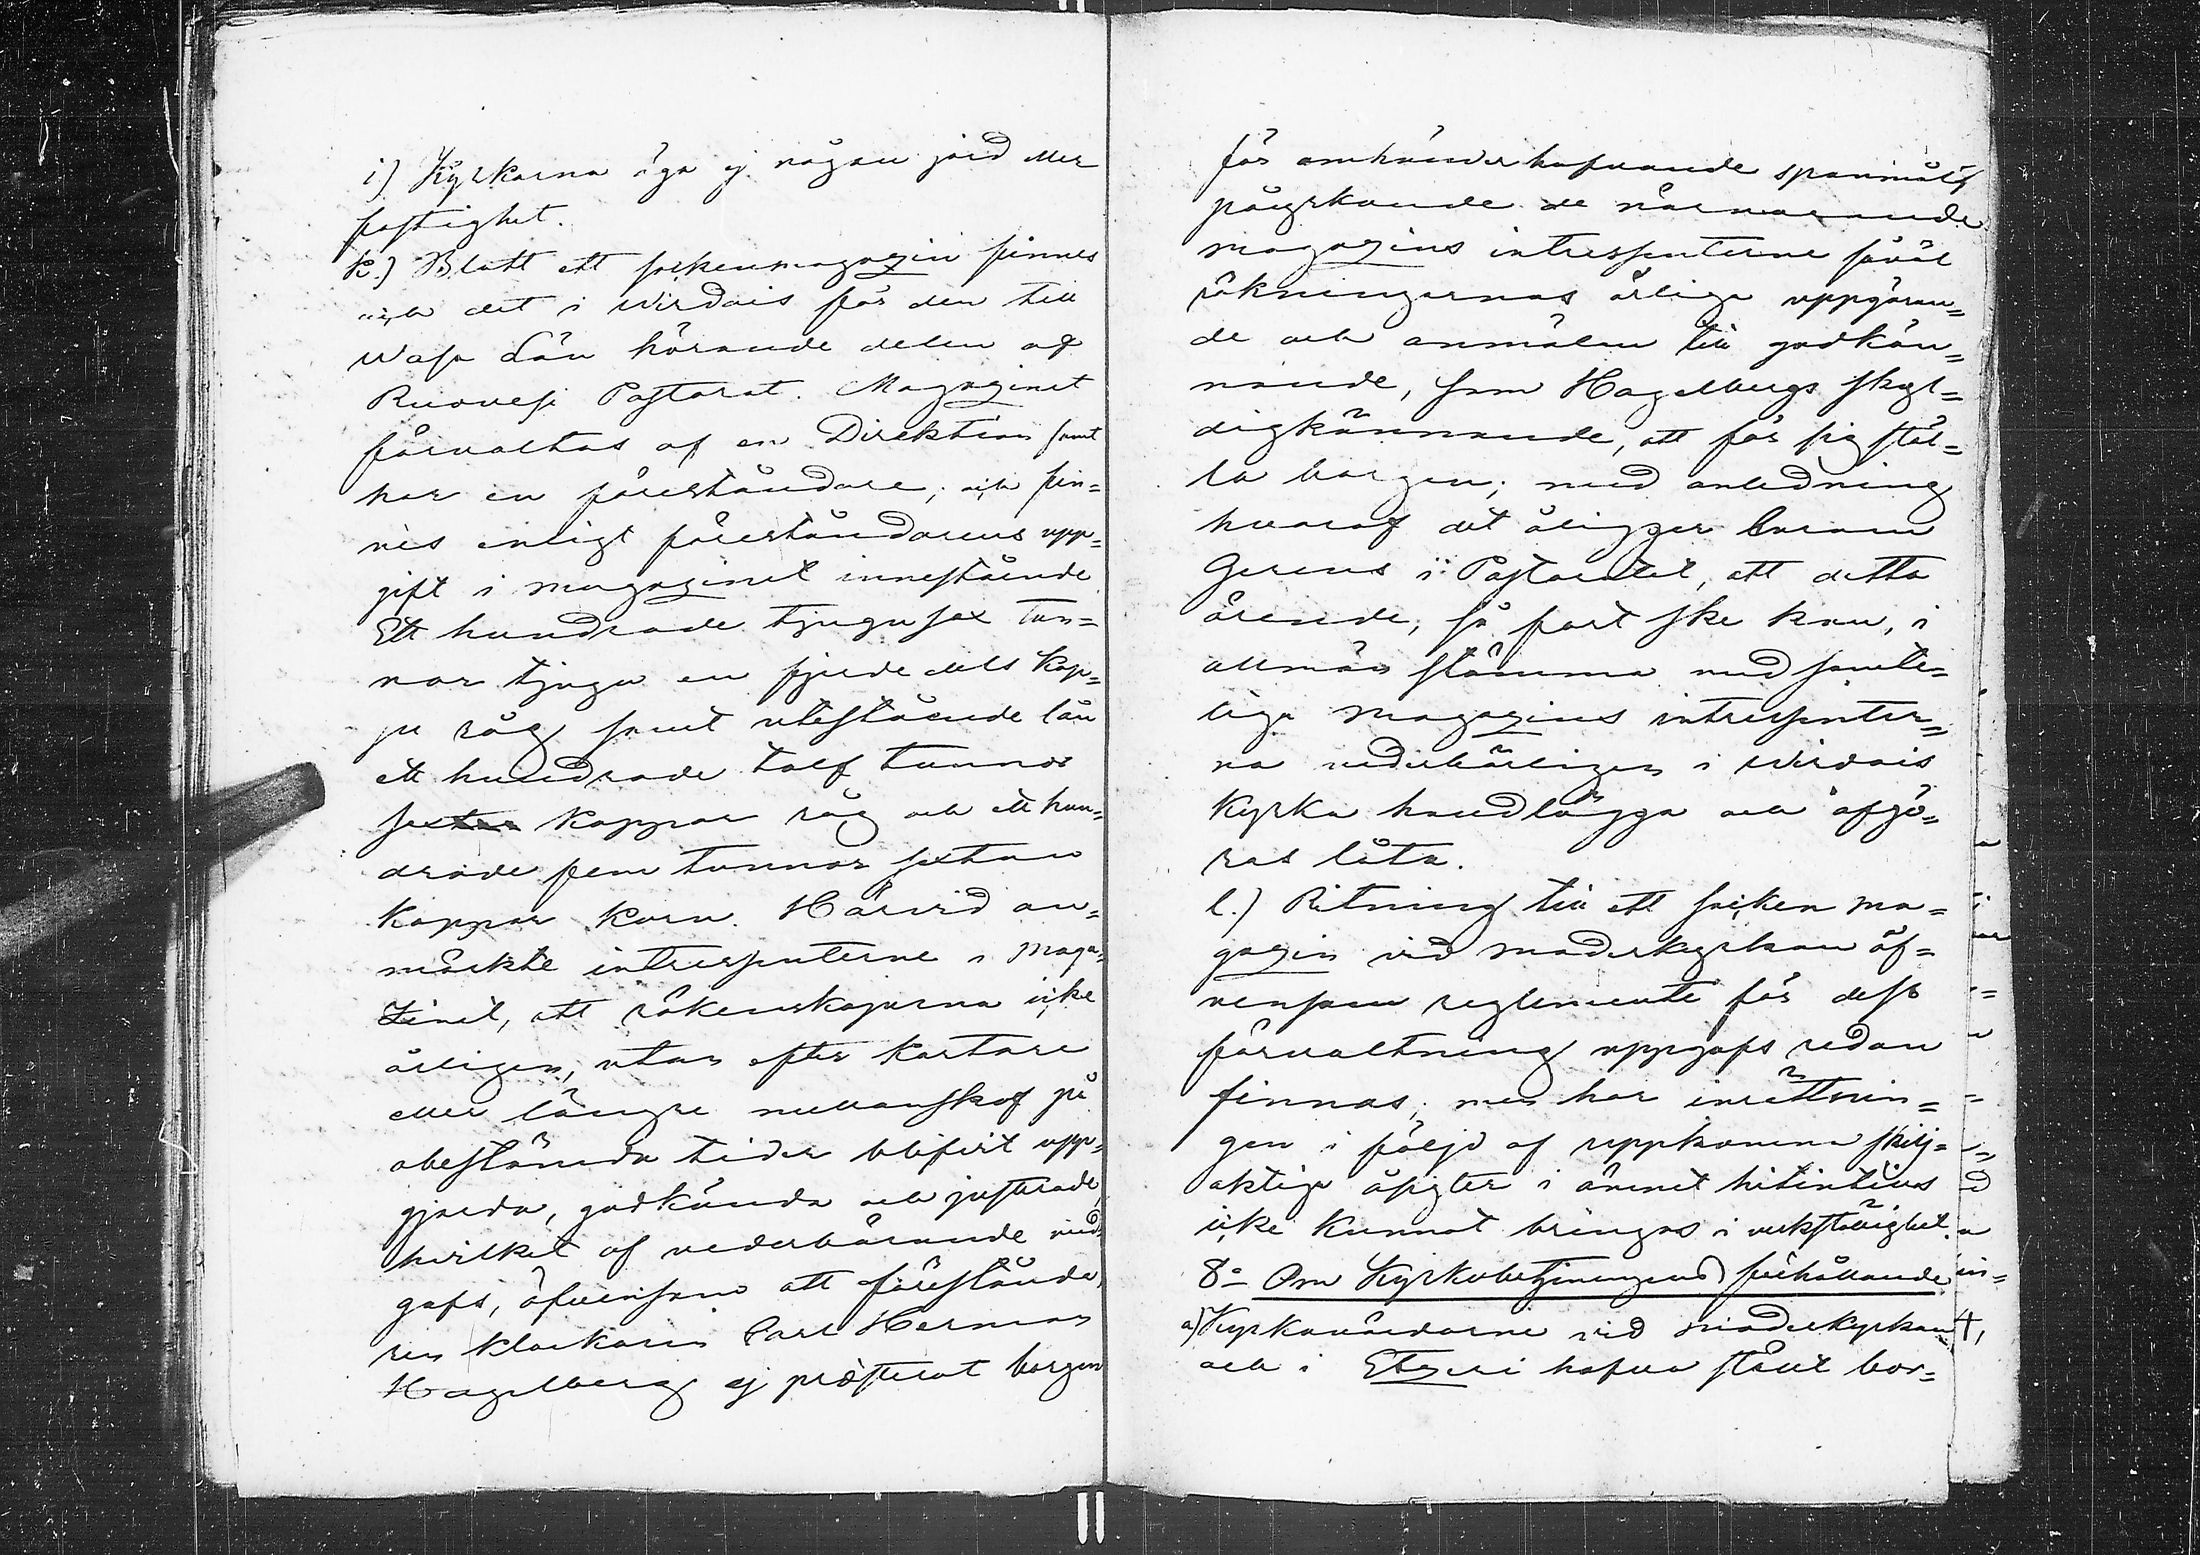 i) Kyrkorna äga ej någon jord eller
fastighet.
k.) Blott ett sockenmagazin finnes
och det i Wirdois för den till
Wasa Län hörande delen af
Ruovesi Pastorat. Magazinet
förvaltas af en Direktion samt
har en föreståndare; och fin=
nes enligt föreståndarens upp=
gift i magazinet innestående
Ett hundrade tjugusex tun=
nor tjugu en fjerde dels kap=
pe råg samt utestående lån
ett hundrade tolf tunnor
sexton kappar råg och ett hun=
drade fem tunnor sexton
Kappar Korn. Härvid an=
märkte intressenterne i Maga=
zinet, att räkenskaperna icke
årligen, utan efter kortare
eller längre mellanskof på
obestämda tider blifvit upp=
gjorda, godkända och justerade,
hvilket af vederbörande med=
gafs, äfvensom att förestånda=
ren Klockaren Carl Herman
Hagelberg ej præsterat borgen
för omhänderhafvande spanmål,
påyrkande de närvarande
magazins intressenterne såväl
räkningarnas årliga uppgöran=
de och anmälan till godkän=
nande, som Hagelbergs skyl=
digkännande, att för sig stäl=
la borgen; med anledning
hvaraf det åligger Coram
Gerens i Pastoratet, att detta
ärende, så fort ske kan, i
allmän stämma med samte=
liga magazins intressenter=
na vederbörligen i Wirdois
Kyrka handlägga och afgö=
ras låta.
l.) Ritning till ett socken ma=
gazin vid moderkyrkan äf=
vensom reglemente för dess
förvaltning uppgafs redan
finnas; men har inrättnin=
gen i följd af uppkomna skilj=
aktiga åsigter i ämnet hitintills
icke kunnat bringas i verkställighet.
8:o Om Kyrkobetjeningens förhållande
a) Kyrkovärdarne vid moderkyrkan
och i Etzeri hafva ställt bor=